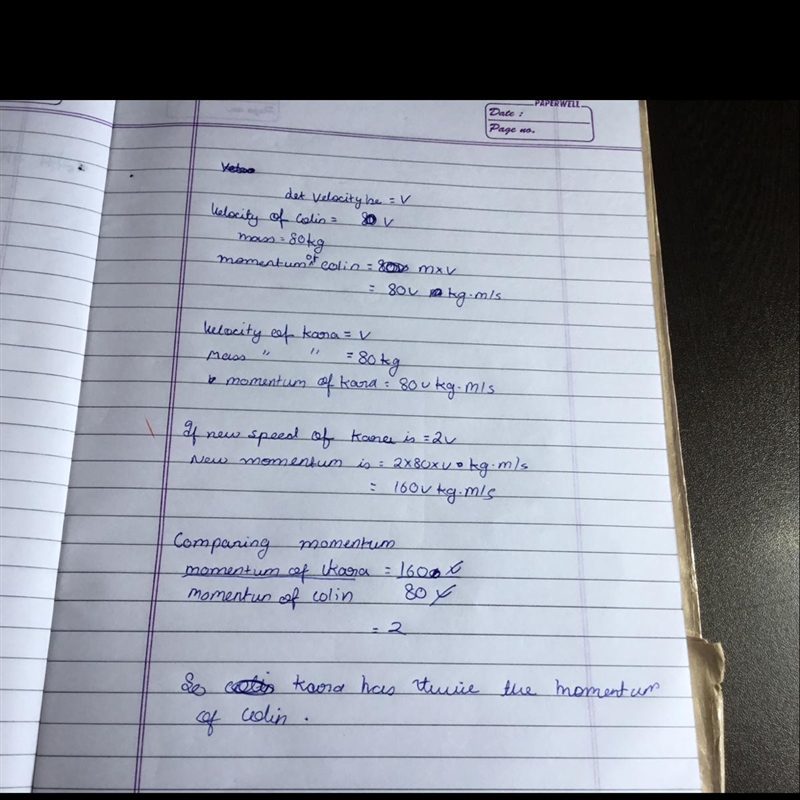 PAPERWELL
Date :
Page no.
let velocity be = V
Velocity of Colin = V
mass = 80 kg
momentum of colin = m×v
= 80v kg.m/s
Velocity of Kara = V
Mass " " = 80 kg
momentum of Kara = 80v kg.m/s
If new speed of Kara is = 2v
New momentum is = 2×80×v kg.m/s
= 160v kg.m/s
Comparing momentum
momentum of Kara = 160 v
momentun of colin 80 v
= 2
So Kara has twice the momentum
of Colin .